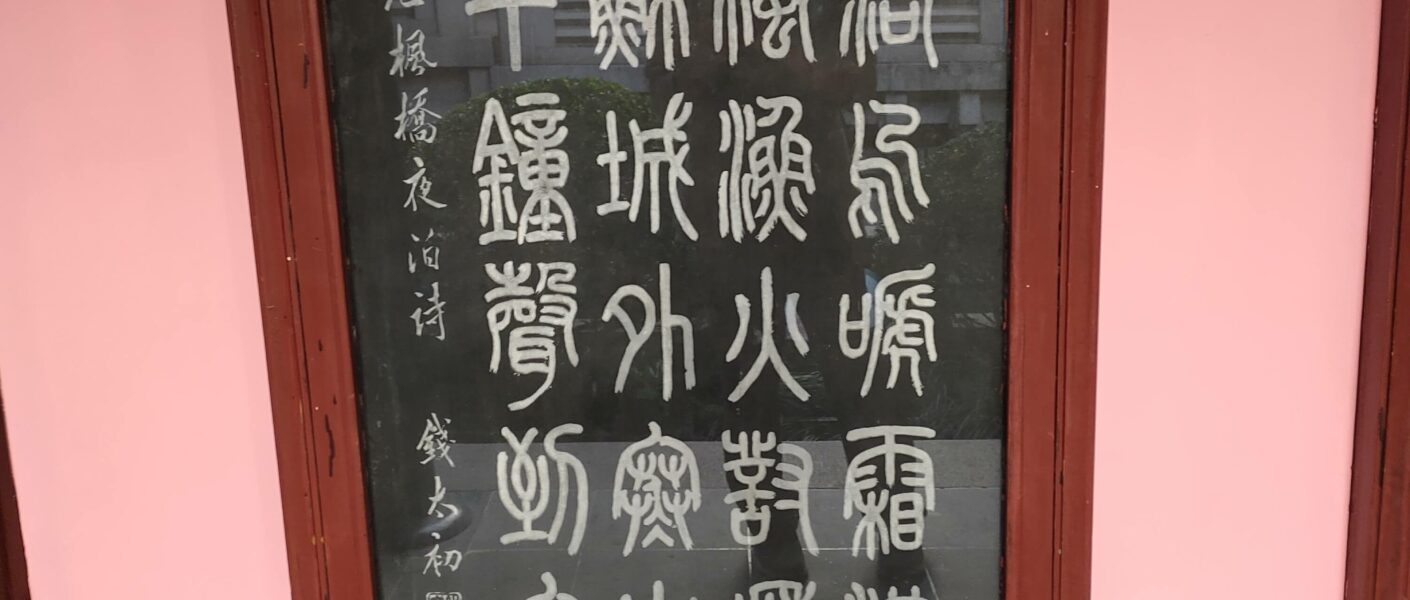 落烏嗁霜滿
楓漁火對
蘇城外寒山
半鐘聲到客
楓橋夜泊詩 錢太初